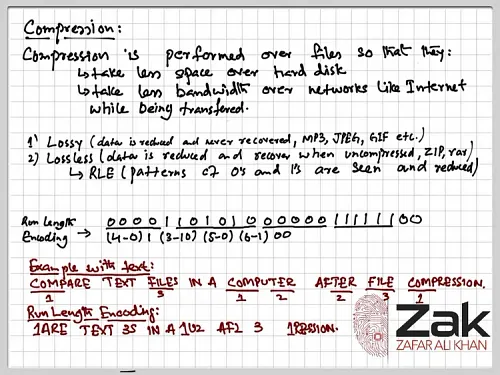 Compression:
Compression is performed over files so that they:
↳ take less space over hard disk
↳ take less bandwidth over networks like Internet
while being transfered.
1) Lossy (data is reduced and never recovered, MP3, JPEG, GIF etc.)
2) Lossless (data is reduced and recover when uncompressed, ZIP, rar)
↳ RLE (patterns of 0's and 1's are seen and reduced)
Run Length
Encoding →
0 0 0 0 1 1 0 1 0 1 0 0 0 0 0 0 1 1 1 1 1 1 0 0
(4-0) 1 (3-10) (5-0) (6-1) 00
Example with text:
COMPARE TEXT FILES IN A COMPUTER AFTER FILE COMPRESSION.
1 3 1 2 2 3 1
Run Length Encoding:
1ARE TEXT 3S IN A 1U2 AF2 3 1RESSION.
Zak
ZAFAR ALI KHAN